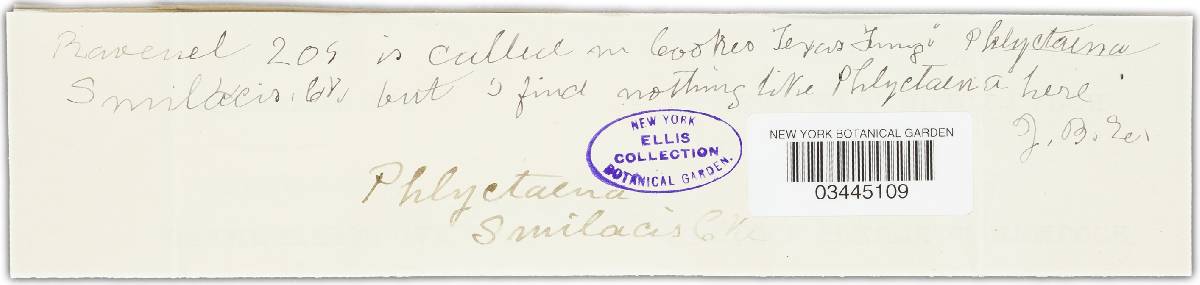 Ravenel 209 is called in Cooke's Texas Fungi Phlyctaena
Smilacis, Ck, but I find nothing like Phlyctaena here
J. B. E.
NEW YORK
ELLIS
COLLECTION
BOTANICAL GARDEN.
NEW YORK BOTANICAL GARDEN
03445109
Phlyctaena
Smilacis Cke